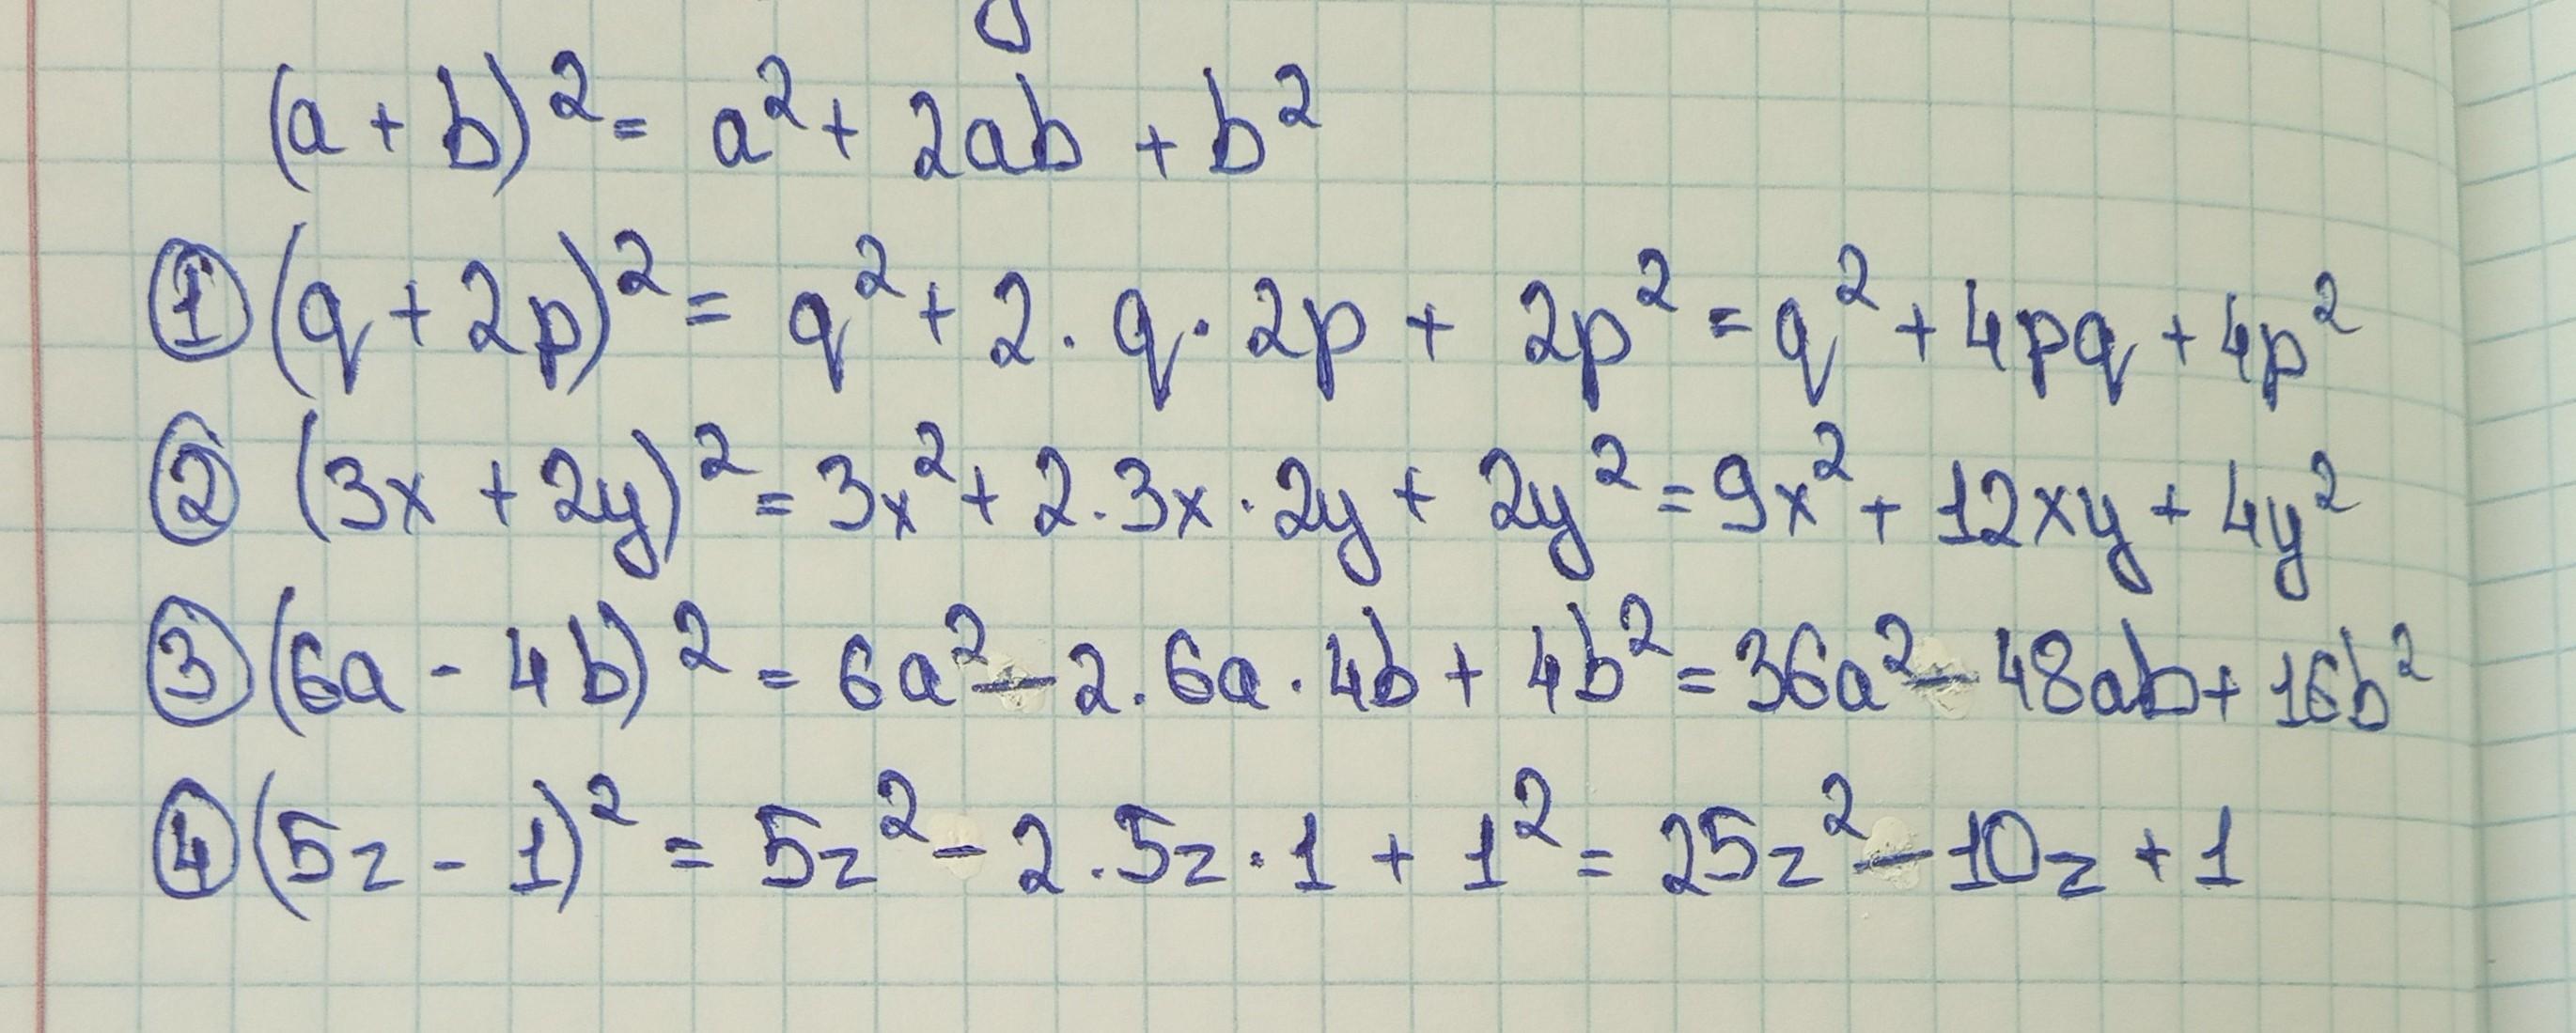 (a + b)² = a² + 2ab + b²
① (q + 2p)² = q² + 2 · q · 2p + 2p² = q² + 4pq + 4p²
② (3x + 2y)² = 3x² + 2 · 3x · 2y + 2y² = 9x² + 12xy + 4y²
③ (6a - 4b)² = 6a² - 2 · 6a · 4b + 4b² = 36a² - 48ab + 16b²
④ (5z - 1)² = 5z² - 2 · 5z · 1 + 1² = 25z² - 10z + 1